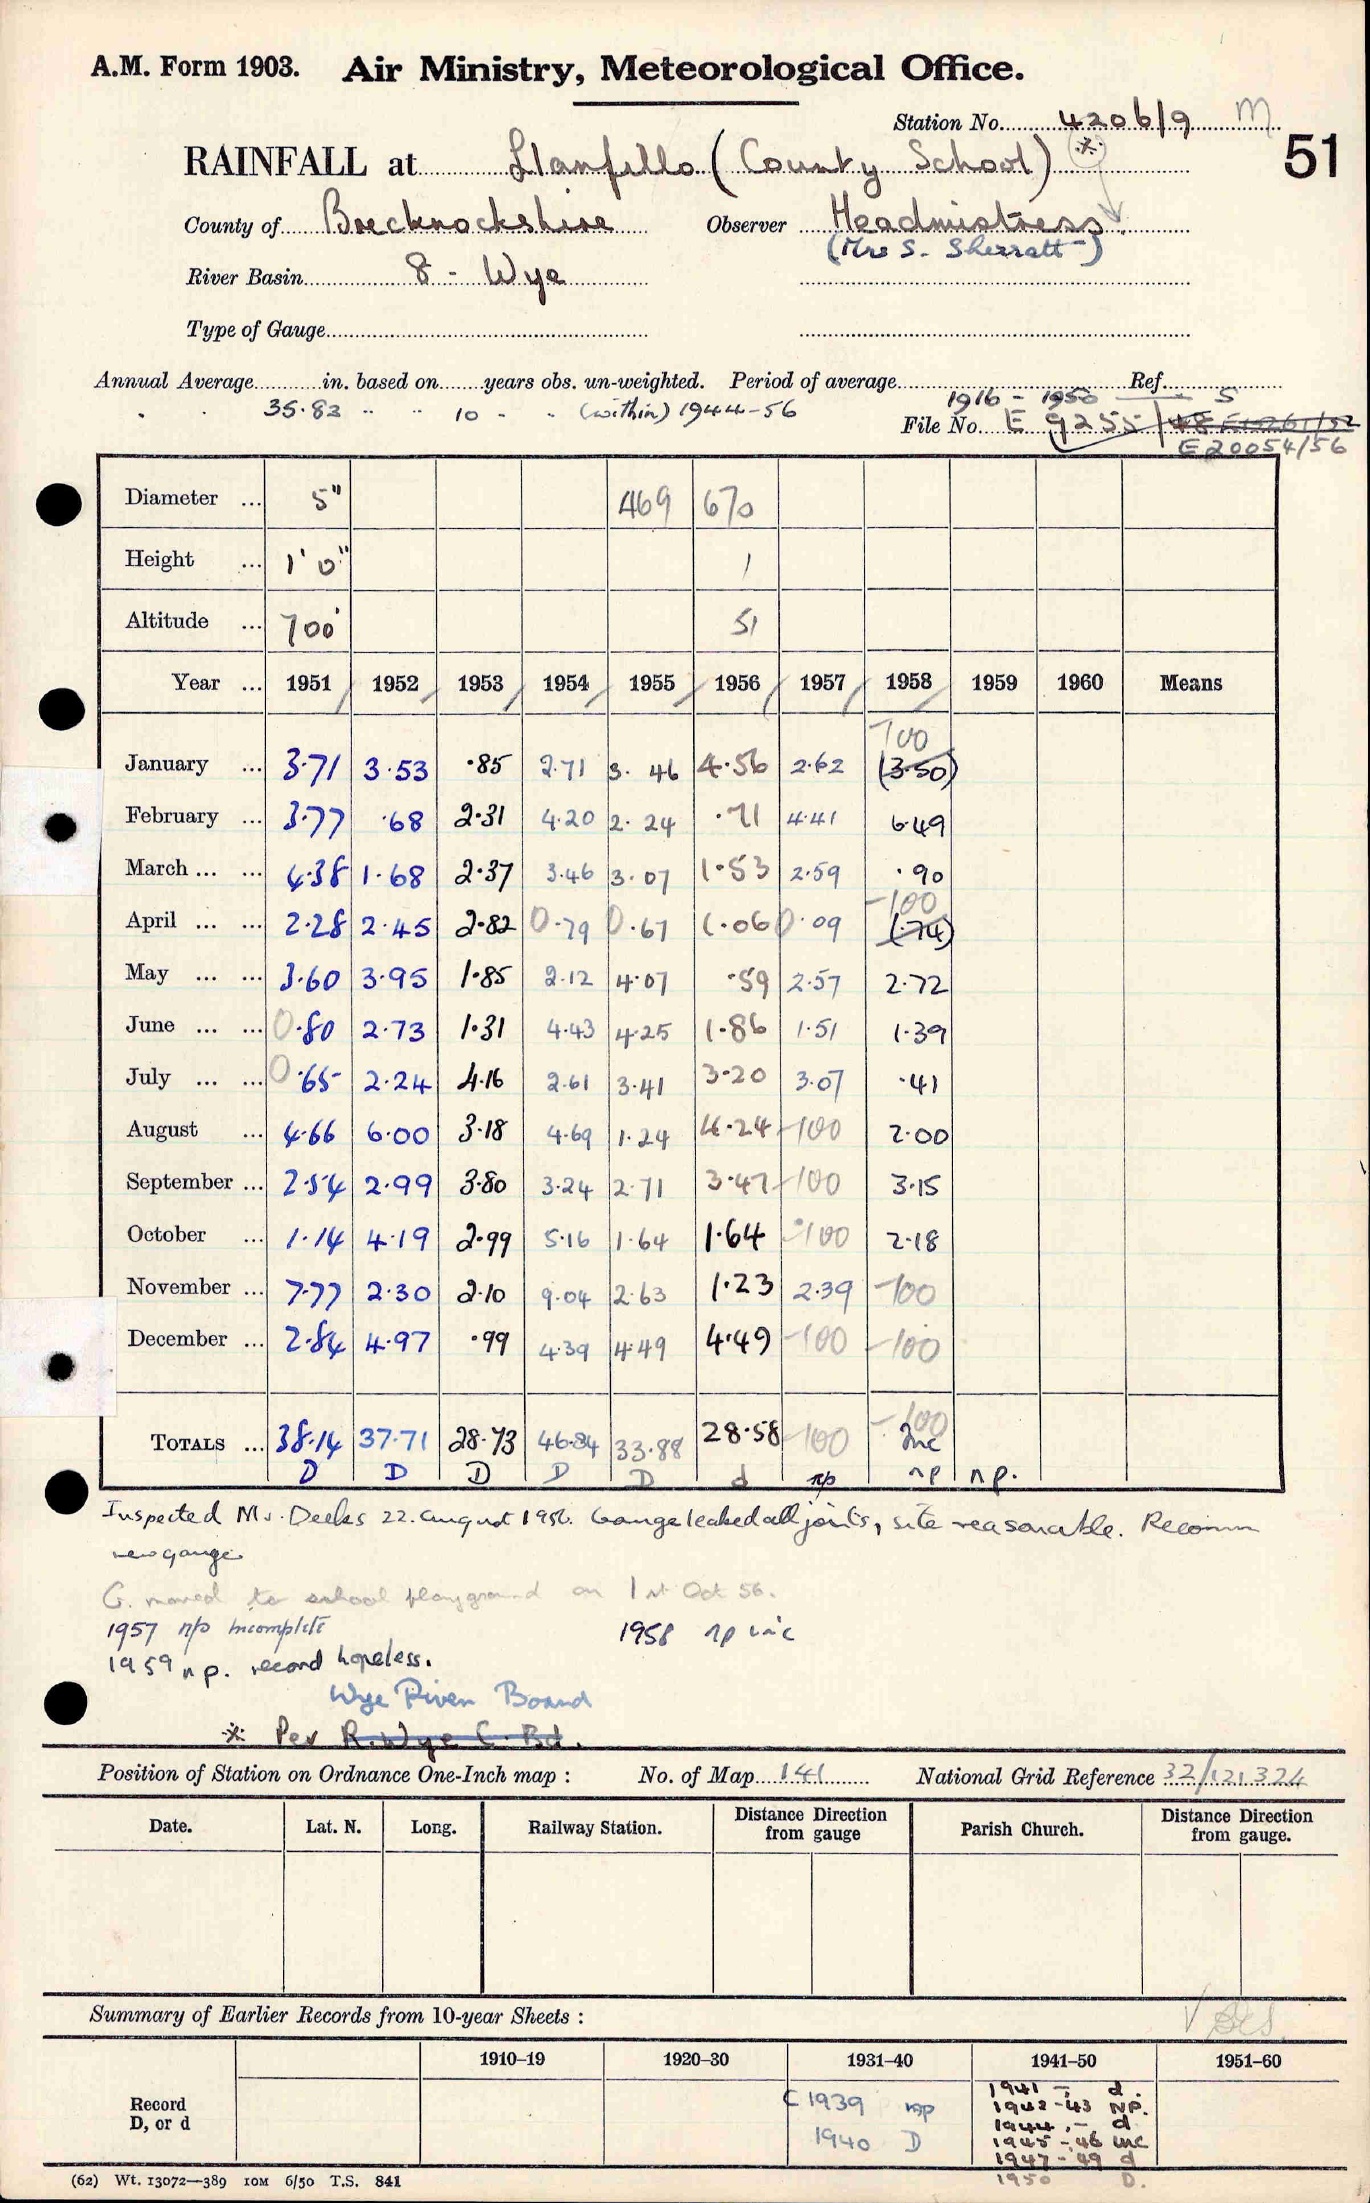 A.M. Form 1903. Air Ministry, Meteorological Office.
Station No. 4206/9 M
RAINFALL at Llanfillo (County School) ※ 51
County of Brecknockshire Observer Headmistress.
(Mrs S. Sherratt)
River Basin 8 - Wye
Type of Gauge
Annual Average in. based on years obs. un-weighted. Period of average 1916 - 1950 Ref. S
" " 35.82 " " 10 " " (within) 1944-56
File No. E 9255/48
E 20054/56
Diameter ... 5" 469 670
Height ... 1' 0" 1
Altitude ... 700' 51
Year ... 1951 1952 1953 1954 1955 1956 1957 1958 1959 1960 Means
-100
January ... 3.71 3.53 .85 2.71 3.46 4.56 2.62 (3.50)
February ... 3.77 .68 2.31 4.20 2.24 .71 4.41 6.49
March ... ... 4.38 1.68 2.37 3.46 3.07 1.53 2.59 .90
-100
April ... ... 2.28 2.45 2.82 0.79 0.67 1.06 0.09 (.74)
May ... ... 3.60 3.95 1.85 2.12 4.07 .59 2.57 2.72
June ... ... 0.80 2.73 1.31 4.43 4.25 1.86 1.51 1.39
July ... ... 0.65 2.24 4.16 2.61 3.41 3.20 3.07 .41
August ... 4.66 6.00 3.18 4.69 1.24 4.24 -100 2.00
September ... 2.54 2.99 3.80 3.24 2.71 3.47 -100 3.15
October ... 1.14 4.19 2.99 5.16 1.64 1.64 -100 2.18
November ... 7.77 2.30 2.10 9.04 2.63 1.23 2.39 -100
December ... 2.84 4.97 .99 4.39 4.49 4.49 -100 -100
-100
TOTALS ... 38.14 37.71 28.73 46.84 33.88 28.58 -100 Inc
D D D D D d np np np.
Inspected Mr. Deeks 22. August 1956. Gauge leaked all joints, site reasonable. Recomm
new gauge
G. moved to school playground on 1st Oct 56.
1957 np incomplete 1958 np inc
1959 np. record hopeless.
Wye River Board
※ Per R. Wye C. Bd.
Position of Station on Ordnance One-Inch map : No. of Map 141 National Grid Reference 32/121324
Date. Lat. N. Long. Railway Station. Distance Direction from gauge Parish Church. Distance Direction from gauge.
Summary of Earlier Records from 10-year Sheets :
1910–19 1920–30 1931–40 1941–50 1951–60
Record
D, or d
C 1939 np
1940 D
1941 - d.
1942-43 NP.
1944 - d
1945-46 inc
1947-49 d
1950 D.
(62) Wt. 13072—389 10M 6/50 T.S. 841